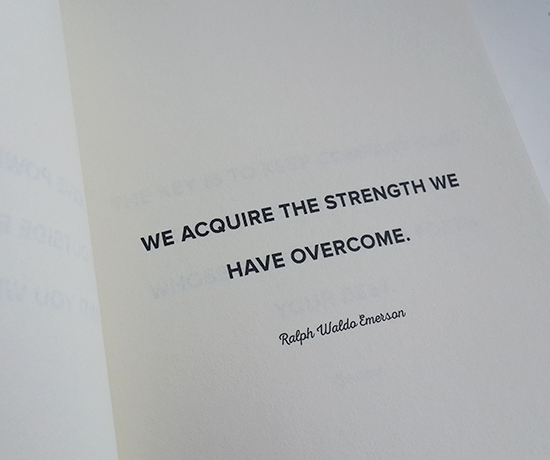 WE ACQUIRE THE STRENGTH WE
HAVE OVERCOME.
Ralph Waldo Emerson